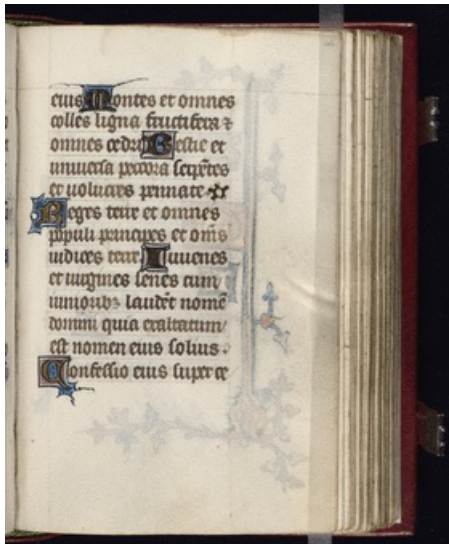 eius Montes et omnes
colles ligna fructifera ⁊
omnes cedri Bestie et
uniuersa pecora serpẽtes
et uolucres pennate
Reges terre et omnes
populi principes et om̃s
iudices terre Iuuenes
et uirgines senes cum
iunioribꝫ laudẽt nomẽ
domini quia exaltatum
est nomen eius solius .
Confessio eius super ce